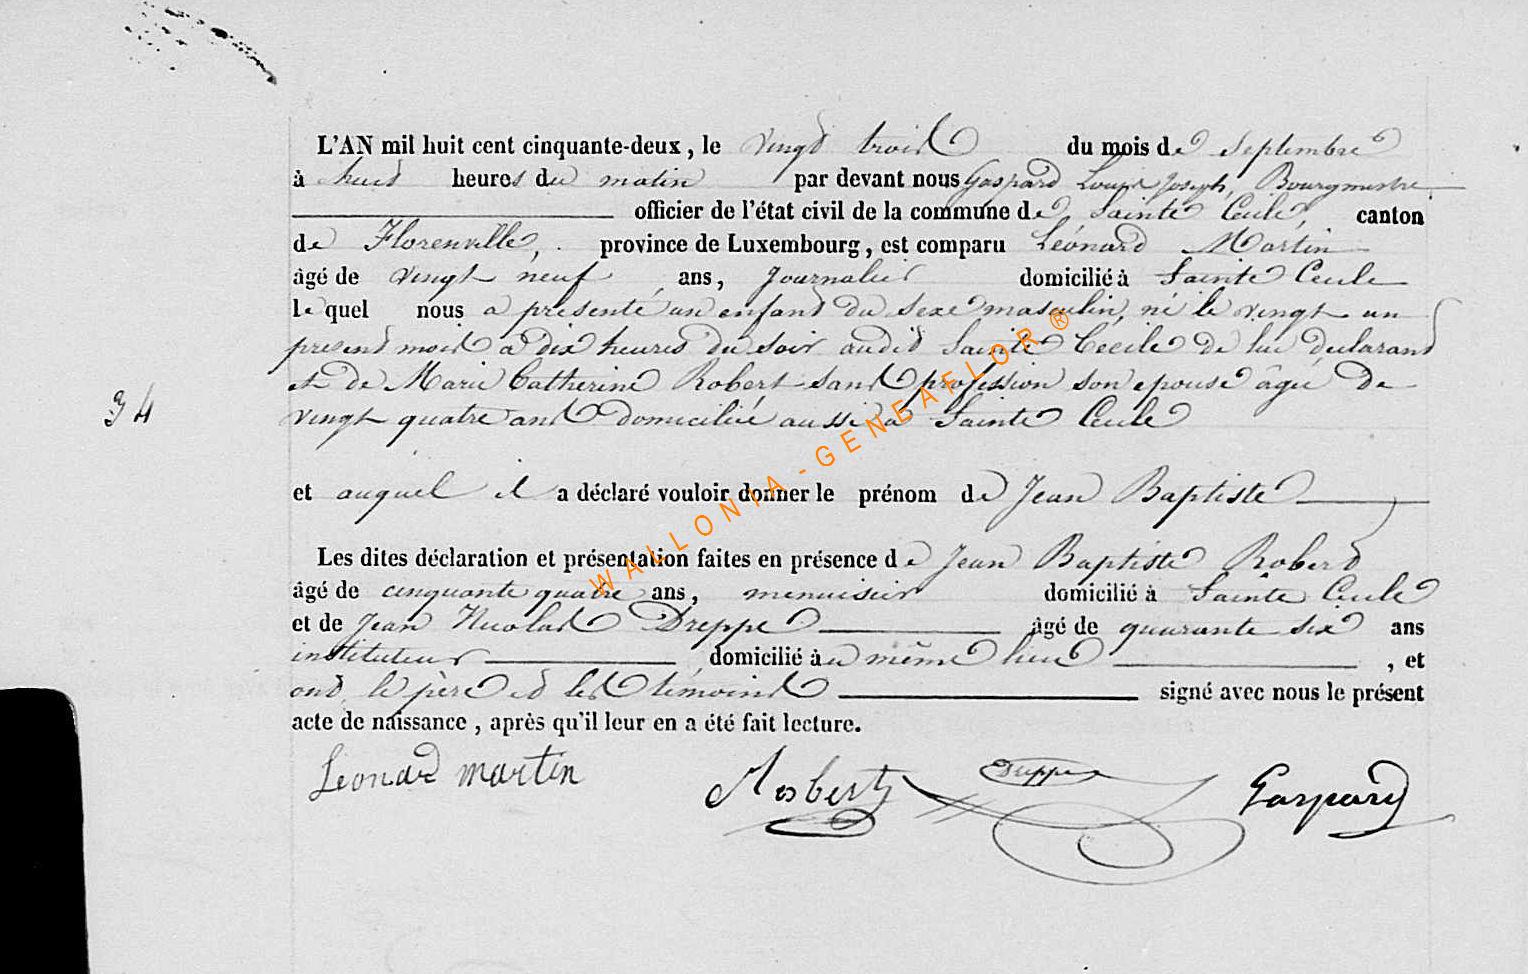 L'AN mil huit cent cinquante-deux, le vingt trois du mois de Septembre
à huit heures du matin par devant nous Gaspard Louis Joseph, Bourgmestre
officier de l'état civil de la commune de Sainte Cecile, canton
de Florenville, province de Luxembourg, est comparu Léonard Martin
âgé de vingt neuf ans, Journalier domicilié à Sainte Cecile
lequel nous a présenté un enfant du sexe masculin, né le vingt un
present mois à dix heures du soir audit Sainte Cécile de lui declarant
et de Marie Catherine Robert sans profession son epouse âgée de
34
vingt quatre ans domiciliée aussi à Sainte Cecile
et auquel il a déclaré vouloir donner le prénom de Jean Baptiste
Les dites déclaration et présentation faites en présence de Jean Baptiste Robert
âgé de cinquante quatre ans, menuisier domicilié à Sainte Cecile
et de Jean Nicolas Dreppe âgé de quarante six ans
instituteur domicilié au même lieu, et
ont le père et les témoins signé avec nous le présent
acte de naissance, après qu'il leur en a été fait lecture.
Léonard martin Robert Dreppe Gaspard
WALLONIA-GENEAFLOR®